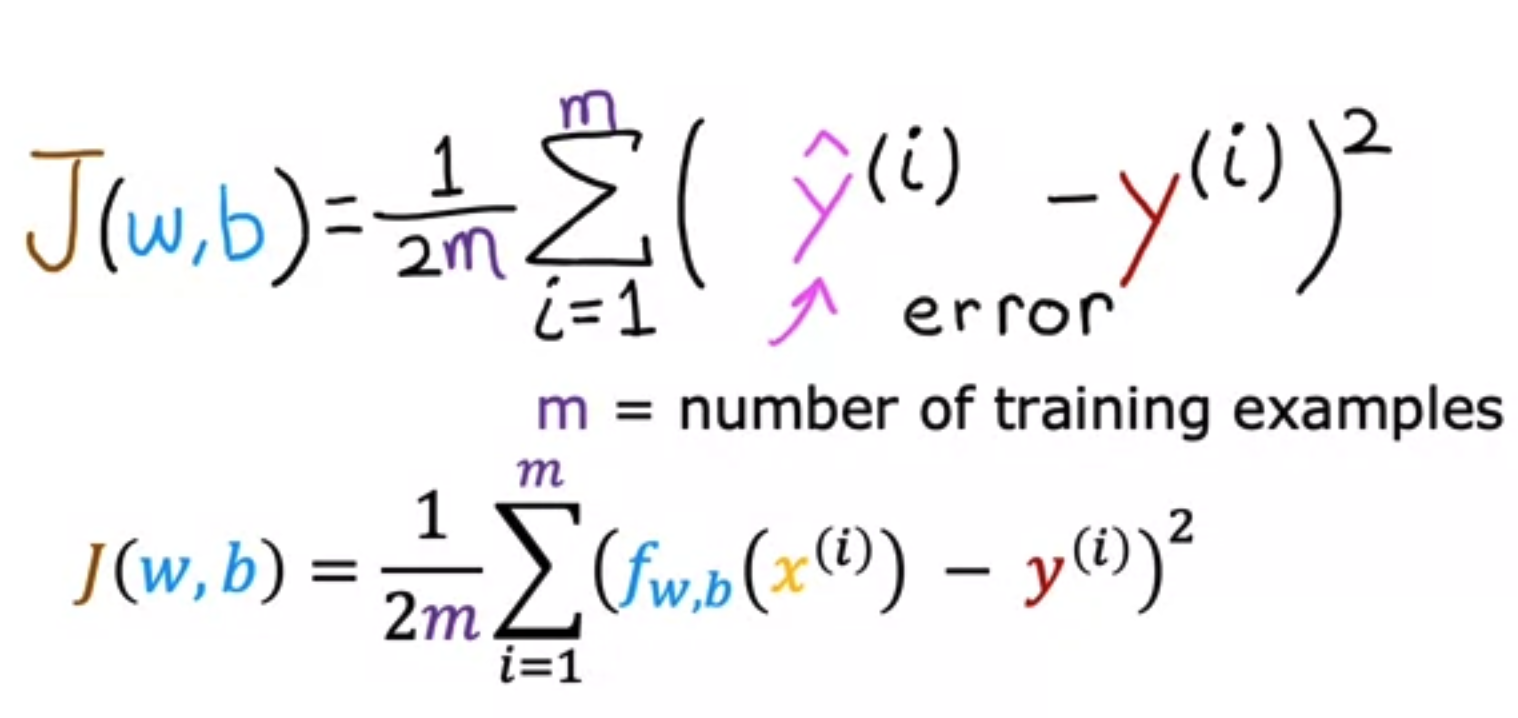 J(w,b) = \frac{1}{2m} \sum_{i=1}^{m} ( ŷ^{(i)} - y^{(i)} )^2
error
m = number of training examples
J(w, b) = \frac{1}{2m} \sum_{i=1}^{m} (f_{w,b}(x^{(i)}) - y^{(i)})^2